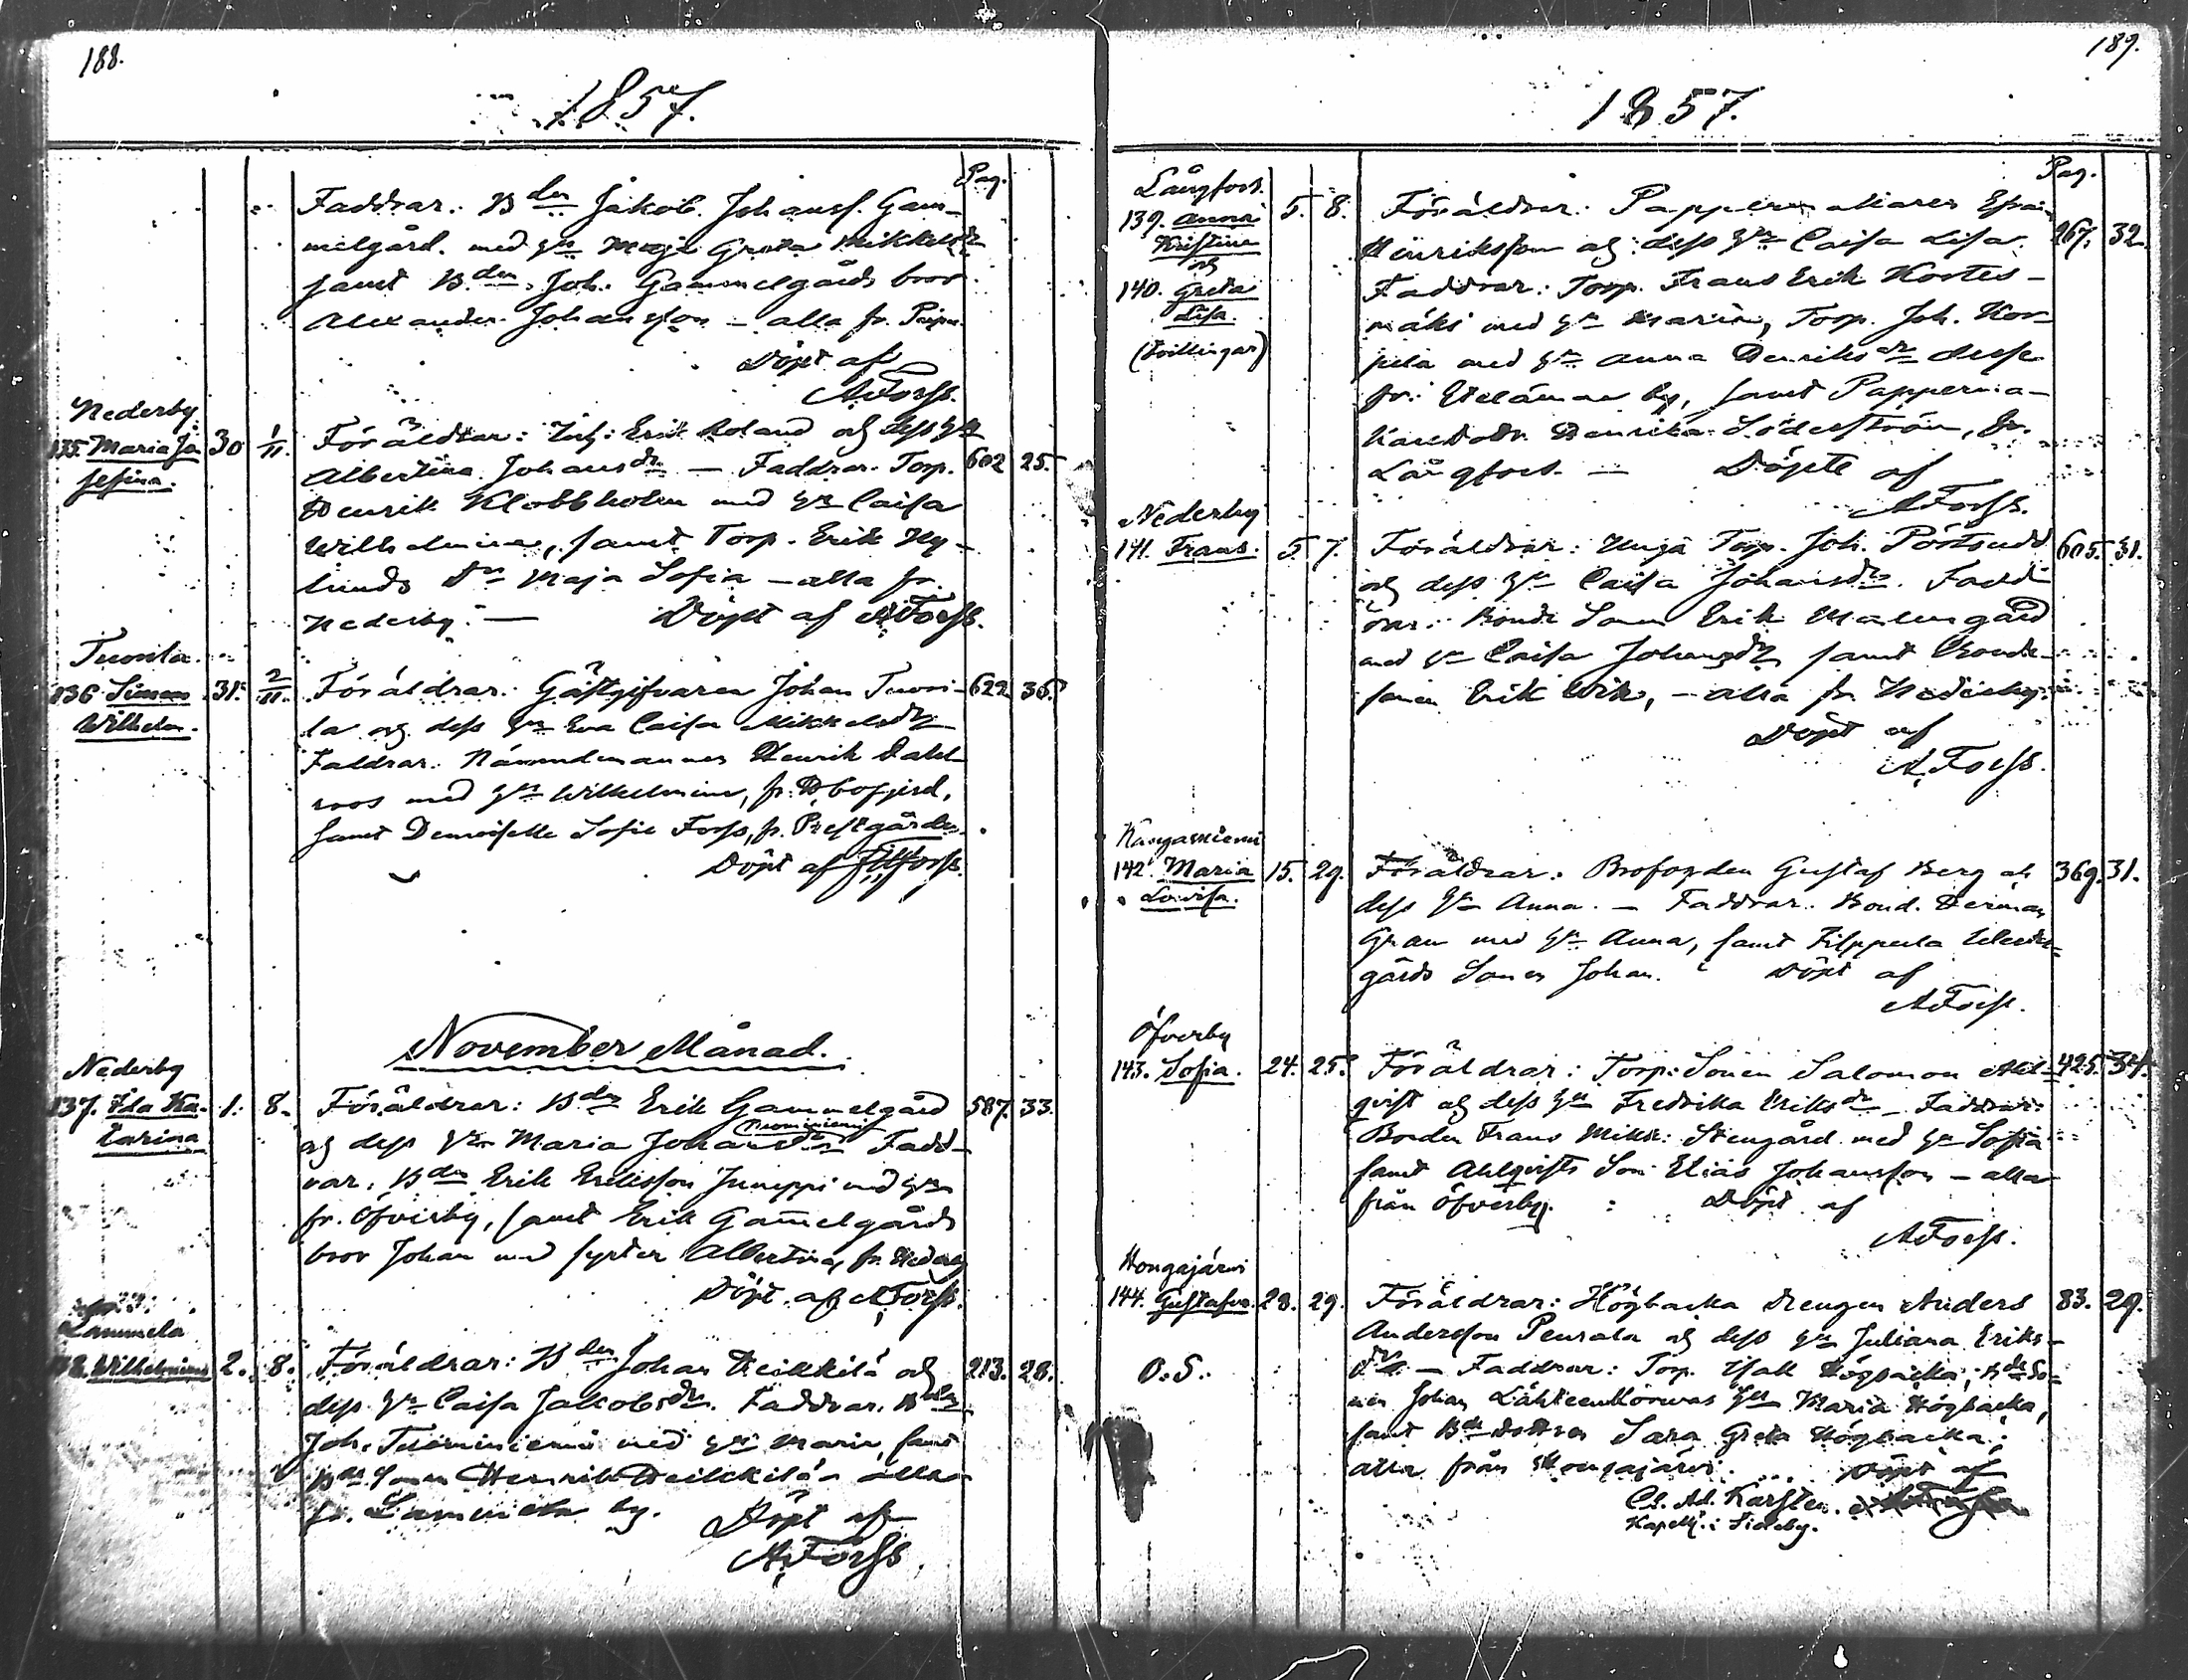 188.
1857.
Pag.
Faddrar: Bden Jakob Johanss. Gam-
melgård med Hu Maja Greta Mikkelsdr
samt Bden Joh. Gammelgårds bror
Alexander Johansson – alla fr.
Döpt af
AForss.
Nederby
135. Maria Jo-
sefina.
30 1/11.
Föräldrar: Inh: Erik Roland och dess Hu
Albertina Johansdr – Faddrar: Torp. 602 25.
Henrik Klobbholm med Hu Caisa
Wilhelmina, samt Torp. Erik Ny-
lunds Dr Maja Sofia – alla fr.
Nederby. — Döpt af AForss.
Tuorila
136 Simon
Wilhelm.
31. 2/11.
Föräldrar: Gästgifvaren Johan Tuori- 622 36.
la och dess Hu Eva Caisa Mikkelsdr
Faddrar: Nämndemannen Henrik Dahl-
roos med Hu Wilhelmina, fr.
samt Demoiselle Sofie Forss, fr. Prestgården.
Döpt af Forss.
November Månad.
Nederby
137. Ida Ka-
tarina
1. 8.
Föräldrar: Bden Erik Gammelgård 587. 33.
och dess Hu Maria Johansdr Fadd-
rar: Bden Erik Eriksson Junippi med Hu
fr. Öfverby, samt Erik Gammelgårds
bror Johan med syster Albertina, fr. Nederby
Döpt af AForss.
Lammela
138. Wilhelmina 2. 8.
Föräldrar: Bden Johan Heikkilä och 213. 28.
dess Hu Caisa Jakobsdr. Faddrar: Bden
Joh. Tuominiemi med Hu Maria, samt
Bde Sonen Henrik Heikkilä – alla
fr. Lammela by. Döpt af
AForss.
189.
1857.
Pag.
Långfors.
139. Anna
Kristina
och
140. Greta
Lisa.
(Tvillingar)
5. 8.
Föräldrar: Pappersmakaren Efraim
Henriksson och dess Hu Caisa Lisa. 267. 32.
Faddrar: Torp. Frans Erik Kortes-
mäki med Hu Maria, Torp. Joh. Kor-
pela med Hu Anna Henriksdr desse
fr. by, samt Papperma-
kare Dodr. Henrika Söderström, fr.
Långfors. — Döpte af
AForss.
Nederby
141. Frans. 5. 7.
Föräldrar: Unga Torp. Joh. Pörtsudd 605. 31.
och dess Hu Caisa Johansdr. Fadd-
rar: Bonde Sonen Erik Malmgård
med Hu Caisa Johansdr samt Bonde-
sonen Erik Wik, – alla fr. Nederby.
Döpt af
AForss.
Kangasniemi
142. Maria
Lovisa.
15. 29.
Föräldrar: Brofogden Gustaf Berg och 369. 31.
dess Hu Anna. — Faddrar: Bond. Herman
Gran med Hu Anna, samt Filppula
gårds Sonen Johan. Döpt af
AForss.
Öfverby
143. Sofia. 24. 25.
Föräldrar: Torp: Sonen Salomon Ahl- 425. 34.
qvist och dess Hu Fredrika Eriksdr – Faddrar:
Bonden Frans Mikk: Stengård med Hu Sofia
samt Ahlqvists Son Elias Johansson – alla
från Öfverby. Döpt af
AForss.
Hongajärvi
144. Gustafva. 28. 29.
O.S.
Föräldrar: Högbacka Drengen Anders 83. 29.
Andersson Penrala och dess Hu Juliana Eriks-
dr. – Faddrar: Torp. Isak Högbacka, Bde So-
nen Johan Hu Maria Högbacka,
samt Bde dottren Sara Greta Högbacka;
alla från Hongajärvi. Döpt af
Cl. Ad. Karsten.
Kapell. i Sideby.